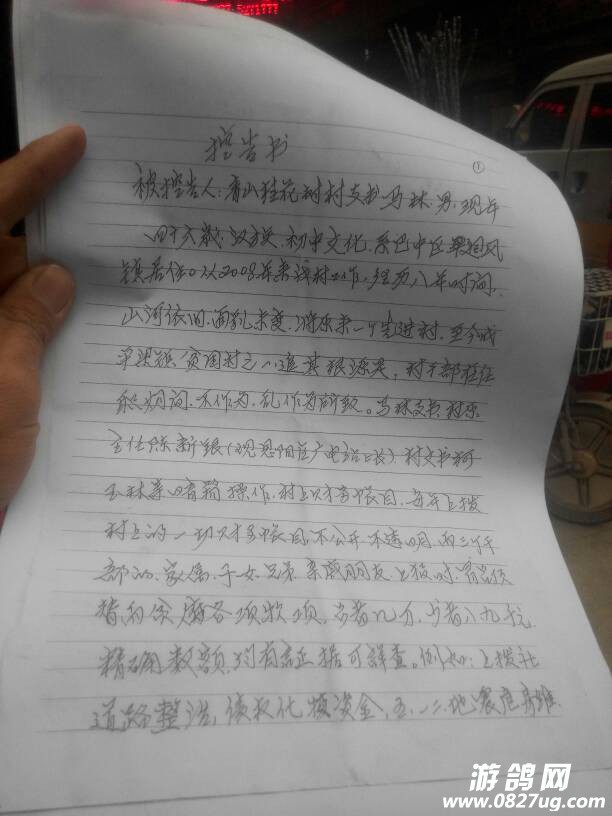 控告书
①
被控告人:青山桂花树村支书马林,男,现年
四十六岁,汉族,初中文化,系巴中区
镇居住。从2008年来该村工作,经历八年时间,
山河依旧,面貌未变,将原来一个先进村,至今成
贫困村之一,追其根源是,村干部在任
期间,不作为,乱作为所致。马林支书,村
主任陈新银(现恩阳区广电站站长),村文书何
玉林等暗箱操作,村上财务帐目,每年上拨
村上的一切财务帐目不公开不透明,而三个干
部的家属,子女,兄弟,亲戚朋友,上报时
各项款项,多者几万,少者八九千元,
精确数额,均有证据可详查。例如:上拨社
道路整治,债权化债资金,五.一二地震危房维
游鸽网
www.0827ug.com